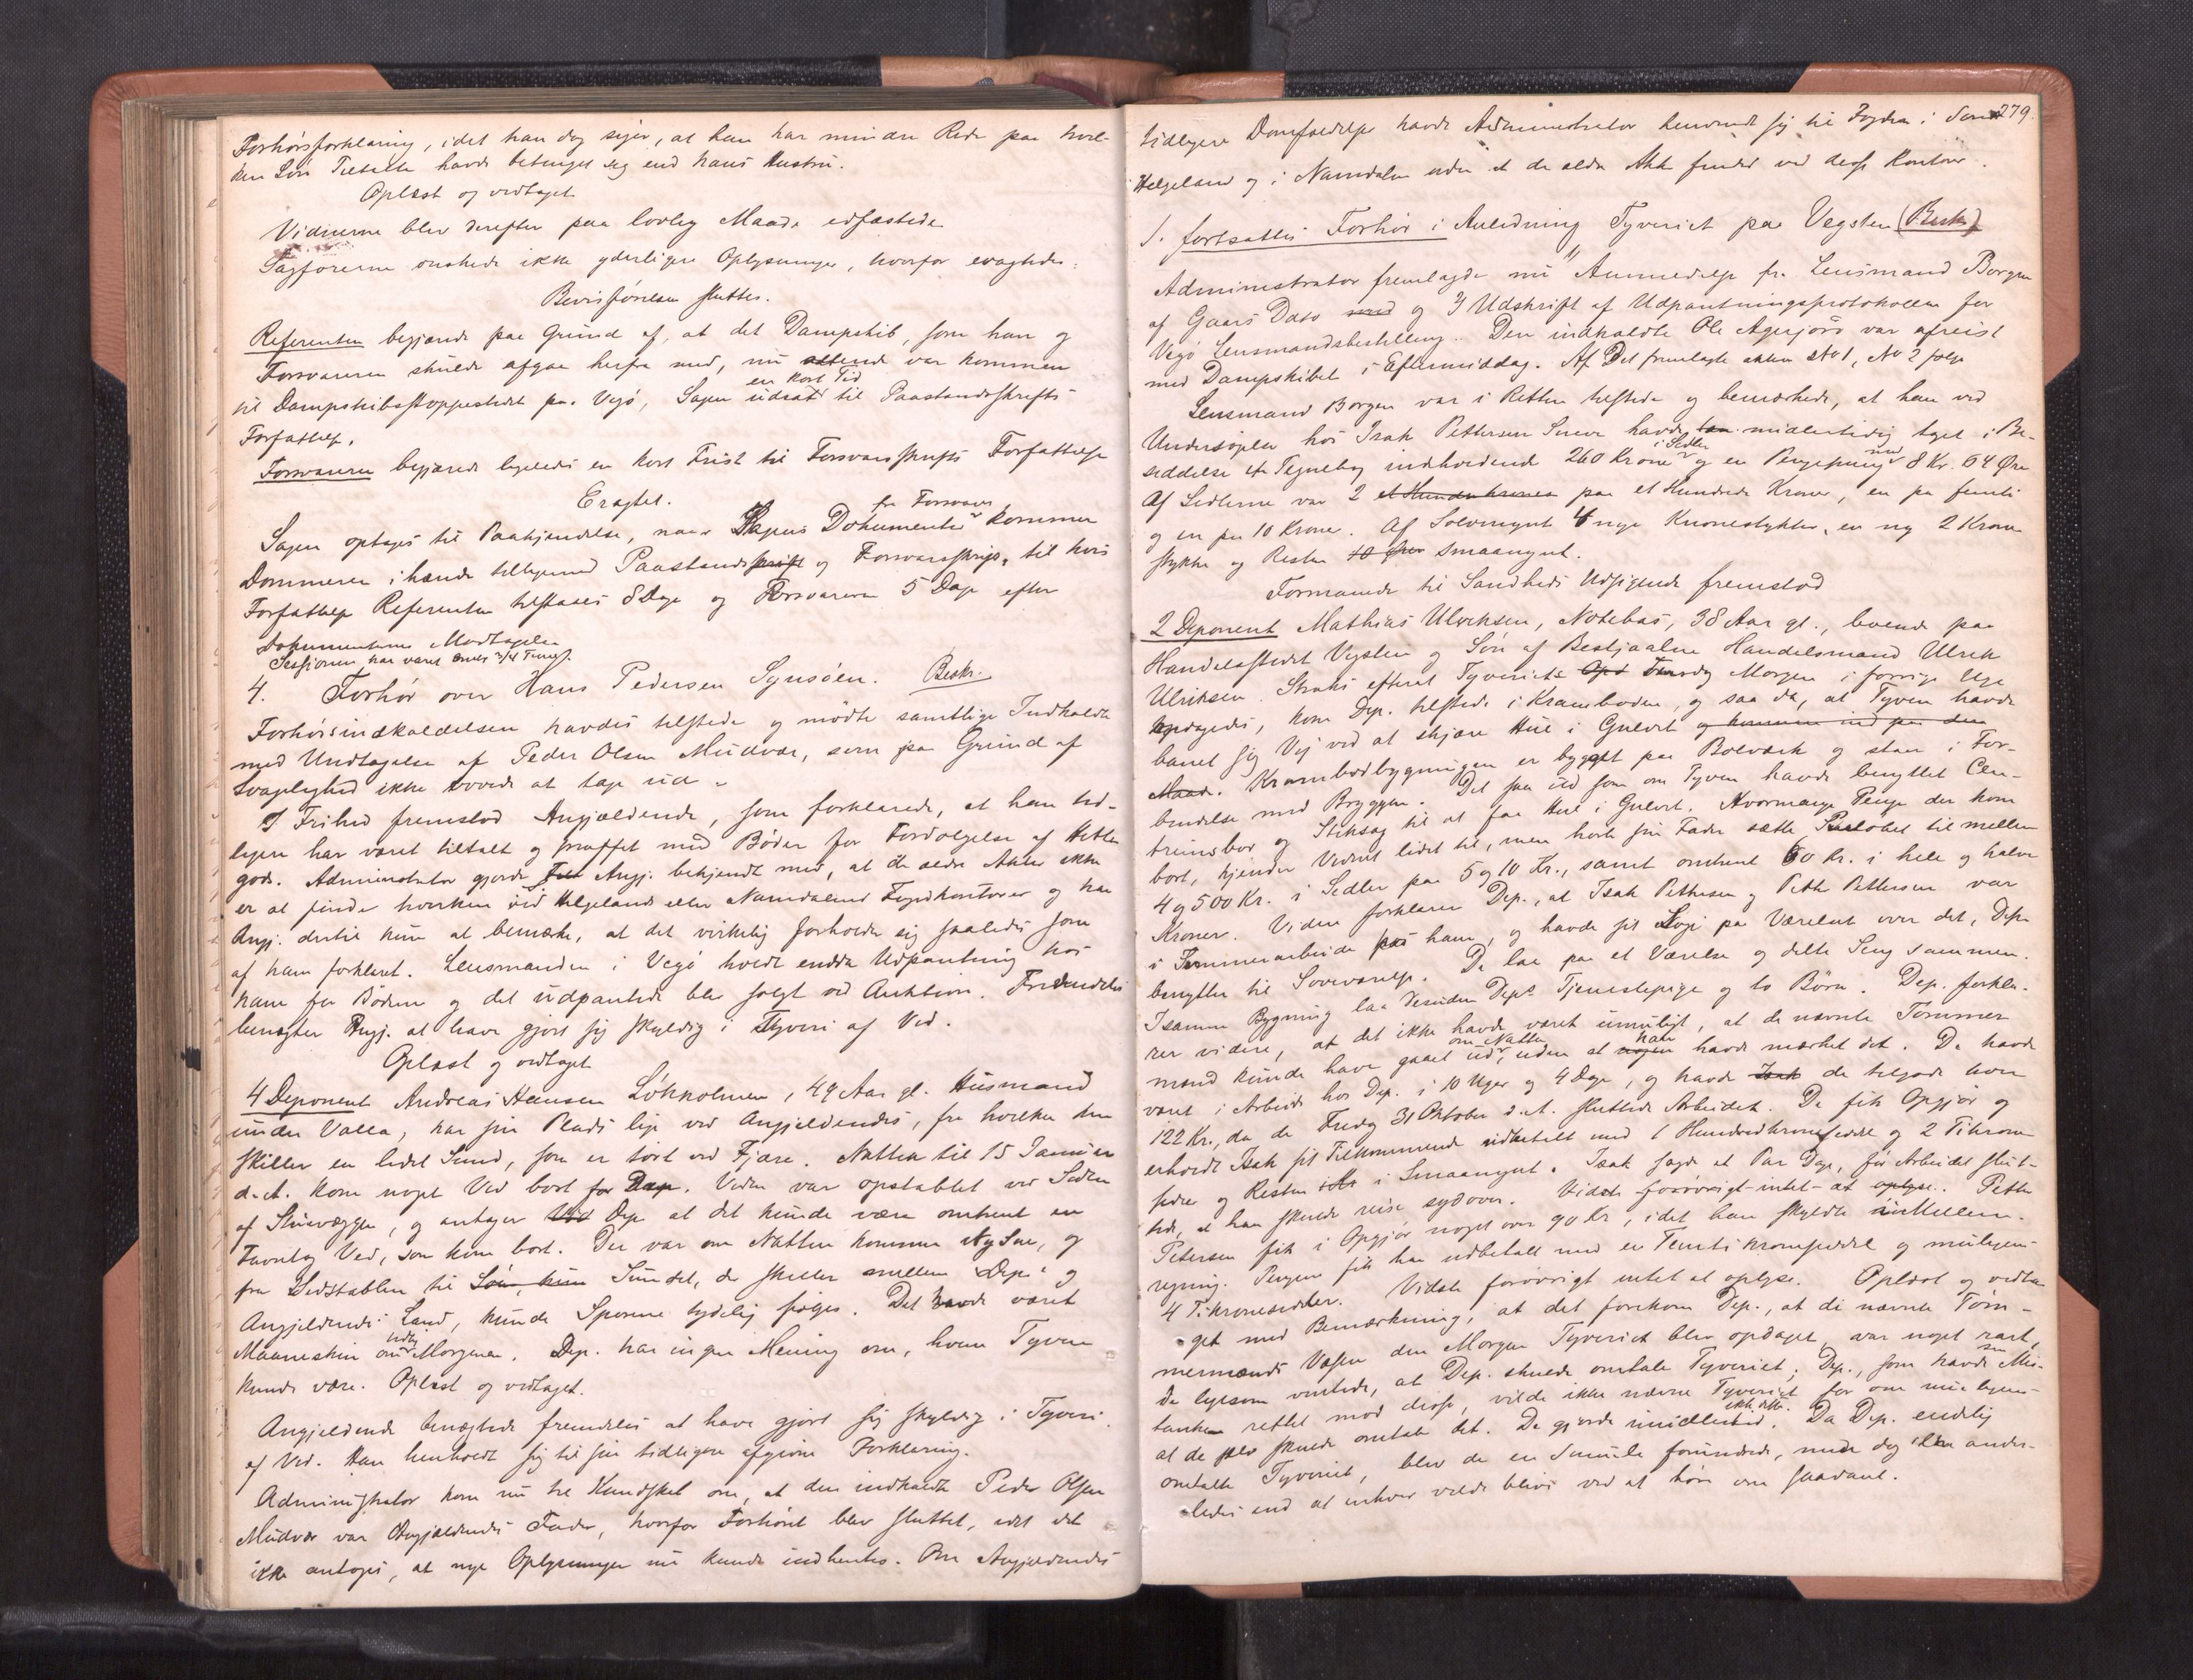 Forhørsforklaring, idet han dog siger, at han har mindre Rede paa hvil-
ken Løn Tiltalte havde betinget sig end hans Hustru.
Oplæst og vedtaget
Vidnerne blev derefter paa lovlig Maade edfæstede
Sagførerne ønskede ikke yderligere Oplysninger, hvorfor eragtedes:
Bevisførelsen sluttes.
Referenten begjærede paa Grund af, at det Dampskib, som han og
Forsvareren skulde afgaa herfra med, nu allerede var kommen
til Dampskibsstoppestedet paa Vegø, Sagen udsat en kort Tid til Paastandsskrifts
Forfattelse.
Forsvareren begjærede ligeledes en kort Frist til Forsvarsskrifts Forfattelse
Eragtet.
Sagen optages til Paakjendelse, naar Sagens Dokumenter fra Forsvaren kommer
Dommeren ihænde tilligemed Paastandsskrift og Forsvarsskrift, til hvis
Forfattelse Referenten tilstaaes 8 Dage og Forsvareren 5 Dage efter
Dokumenternes Modtagelse
Sessionen har varet 3/4 Time.
4. Forhør over Hans Pedersen Synsøen. Beskr.
Forhørsindkaldelsen havdes tilstede og mødte samtlige Indkaldte
med Undtagelse af Peder Olsen Mudvær, som paa Grund af
Svagelighed ikke vovede at tage ud.
I Frihed fremstod Angjældende, som forklarede, at han tid-
ligere har været tiltalt og straffet med Bøder for Fordølgelse af Hitte-
gods. Administrator gjorde Angj. bekjendt med, at de ældre Akter ikke
er at finde hverken ved Helgelands eller Namdalens Fogedkontorer og har
Angj. dertil kun at bemærke, at det virkelig forholder sig saaledes som
af ham forklaret. Lensmanden i Vegø holdt endda Udpantning hos
ham for Bøderne og det udpantede blev solgt ved Auktion. Fremdeles
benægter Angj. at have gjort sig skyldig i Tyveri af Ved.
Oplæst og vedtaget
4 Deponent Andreas Hansen Løkholmen, 49 Aar gl. Husmand
under Valla, har sin Plads lige ved Angjældendes, fra hvilken den
skilles en lidet Sund, som er tørt ved Fjære. Natten til 15 Januar
d. A. kom noget Ved bort for Dep. Veden var opstablet ved Siden
af Skurvæggen, og antager Dep. at det kunde være omtrent en
Favnlag Ved, som kom bort. Der var om Natten kommen Ny Sne, og
fra Vedstabelen til Søn, kun Sundet, der skiller mellem Dep's og
Angjældendes Land, kunde Sporene tydelig følges. Det havde været
Maaneskin tidlig om Morgenen. Dep. har ingen Mening om, hvem Tyven
kunde være. Oplæst og vedtaget.
Angjældende benægtede fremdeles at have gjort sig skyldig i Tyveri
af Ved. Han henholdt sig til sin tidligere afgivne Forklaring.
Administrator kom nu til Kundskab om, at den indkaldte Peder Olsen
Mudvær var Angjældendes Fader, hvorfor Forhøret blev sluttet, idet det
ikke antoges, at nye Oplysninger nu kunde indhentes. Om Angjældendes
279.
tidligere Domfældelse havde Administrator henvendt sig til Fogden i Søndre
Helgeland og i Namdalen uden at de ældre Akter findes ved disses Kontorer.
5. fortsattes Forhør i Anledning Tyveriet paa Vegsten (Beskr)
Administrator fremlagde nu 2, Anmeldelse fra Lensmand Borgen
af Gaars Dato med og 3 Udskrift af Udpantningsprotokollen for
Vegø Lensmandsbestilling. Den indkaldte Ole Agersjord var afreist
med Dampskibet i Eftermiddag. Af Det fremlagte akten No 1, No 2 følge
Lensmand Borgen var i Retten tilstede og bemærkede, at han ved
Undersøgelse hos Isak Pettersen havde midlertidig taget i Be-
siddelse et Tegnebog indholdende 260 Kroner i Sedler og en Pengepung med 8 Kr. 64 Øre
Af Sedlerne var 2 et Hundrekroner paa et Hundrede Kroner, en paa femti
og en paa 10 Kroner. Af Sølvmynt 4 nye Kronestykker, en ny 2 Krone
stykke og Resten 10 Øre Smaamynt.
Formanede til Sandheds Udsigende fremstod
2 Deponent Mathias Ulriksen, Notebas, 38 Aar gl., boende paa
Handelsstedet Vegsten og Søn af Bestyaalne Handelsmand Ulrik
Ulriksen. Straks efterat Tyveriet Morgen i forrige Uge
opdagedes, kom Dep. tilstede i Kramboden, og saa da, at Tyven havde
banet sig Vej ved at skjære Hul i Gulvet og kommen ind paa den
Maade. Krambodbygningen er bygget paa Bolværk og staar i For-
bindelse med Bryggen. Det saa ud som om Tyven havde benyttet Cen-
trumsbor og Stiksag til at faa Hul i Gulvet. Hvormange Penge der kom
bort, kjender Vidnet lidet til, men hørte sin Fader sætte Beløbet til mellem
4 og 500 Kr. i Sedler paa 5 og 10 Kr., samt omtrent 60 Kr. i hele og halve
Kroner. Videre forklarer Dep., at Isak Pettersen og Peter Pettersen var
i Tømmerarbeide hos ham, og havde sit Logi paa Værelset over det, Dep.
benytter til Soveværelse. De laa paa et Værelse og delte Seng sammen.
I samme Bygning laa desuden Dep's Tjenestepige og to Børn. Dep. forkla-
rer videre, at det ikke havde været umuligt, at de nævnte Tømmer
mænd kunde have gaaet ud om Natten, uden at han havde mærket det. De havde
været i Arbeide hos Dep. i 10 Uger og 4 Dage, og havde Isak de tilgode over
122 Kr., da de Fredag 31 Oktober d. A. sluttede Arbeidet. De fik Opgjør og
erholdt Isak sit Tilkommende udbetalt med 1 Hundredkroneseddel og 2 Tikrone
sedler og Resten i Smaamynt. Isak sagde et Par Dage, før Arbeidet slut-
tede, at han skulde reise sydover. Vidste forøvrigt intet at oplyse. Petter
Petersen fik i Opgjør noget over 90 Kr, idet han skyldte imellem-
regning. Pengene fik han udbetalt med en Femtikroneseddel og muligens
4 Tikronesedler. Vidste forøvrigt intet at oplyse. Oplæst og vedta-
get med Bemærkning, at det forekom Dep., at de nævnte Tøm-
mermænds Væsen den Morgen Tyveriet blev opdaget, var noget rart,
de ligesom ventede, at Dep. skulde omtale Tyveriet; Dep., som havde sin Mis-
tanke rettet mod disse, vilde ikke nævne Tyveriet for om muligens
at de selv skulde omtale det. De gjorde imidlertid ikke dette. Da Dep. endelig
omtalte Tyveriet, blev de en Smule forundrede, men dog ikke ander-
ledes end at enhver vilde blive ved at høre om saadant.